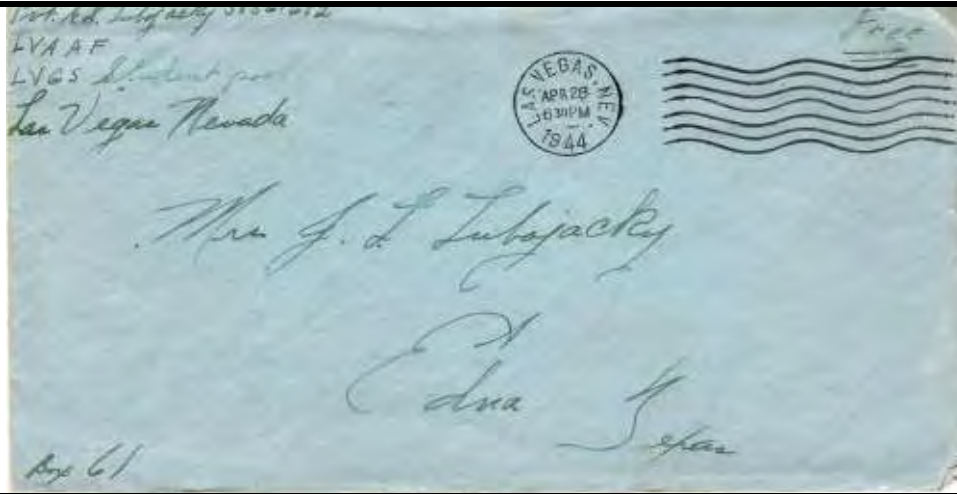 Pvt. Lubojacky
LVAAF
LVGS Student pool
Las Vegas Nevada
Free
LAS VEGAS, NEV.
APR 28
630 PM
1944
Mrs J. L Lubojacky
Edna Texas
Box 61